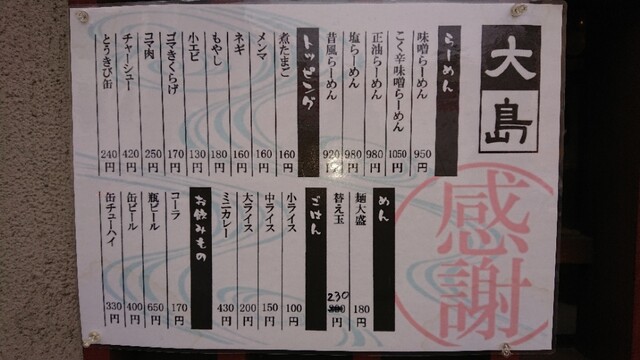 大島
らーめん
味噌らーめん 950円
こく辛味噌らーめん 1050円
正油らーめん 980円
塩らーめん 980円
昔風らーめん 920円
トッピング
煮たまご 160円
メンマ 160円
ネギ 160円
もやし 180円
小エビ 130円
ゴマきくらげ 170円
コマ肉 250円
チャーシュー 420円
とうきび缶 240円
めん
麺大盛 180円
替え玉 230円
ごはん
小ライス 100円
中ライス 150円
大ライス 200円
ミニカレー 430円
お飲みもの
コーラ 170円
瓶ビール 650円
缶ビール 400円
缶チューハイ 330円
感謝